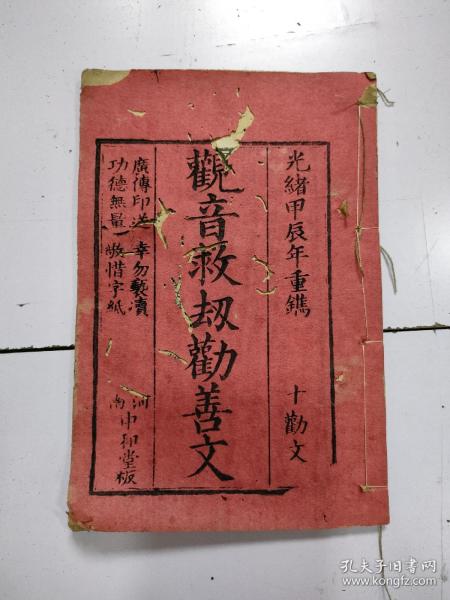 光緒甲辰年重鐫
十勸文
觀音救刼勸善文
廣傳印送
功德無量
幸勿褻瀆
敬惜字紙
河南
中和堂板
孔夫子旧书网
www.kongfz.com